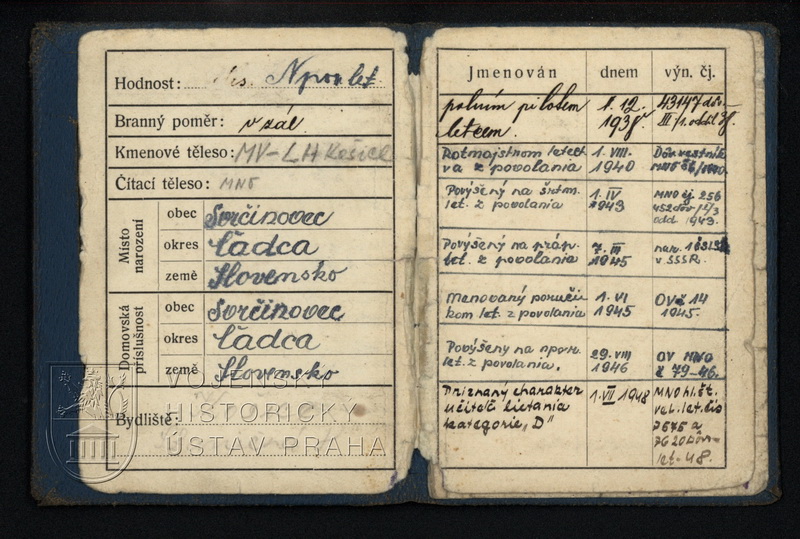 Hodnost: Npor. let.
Branný poměr: v zál.
Kmenové těleso: MV-LH Košice
Čítací těleso: MNO
Místo narození
obec Svrčinovec
okres Čadca
země Slovensko
Domovská příslušnost
obec Svrčinovec
okres Čadca
země Slovensko
Bydliště:
VOJENSKÝ
HISTORICKÝ
ÚSTAV PRAHA
Jmenován dnem výn. čj.
polním pilotem 1. 12. 43147 dův.
letcem. 1938. III/1. odd. 38.
Rotmajstrom letect 1. VIII. Dôv. vestník
va z povolania 1940
Povýšený na šntm. 1. IV MNO čj. 256
let. z povolania 1943 452 dôv.
odd. 1943.
Povýšený na práp. 7. III
let. z povolania 1945 v SSSR.
Menovaný poručí- 1. VI OVč 14
kom let. z povolania 1945 1945.
Povýšený na npor. 29. VIII OV MNO
let. z povolania. 1946 č 79-46.
Priznaný charakter 1. VII 1948 MNO hl. št.
učiteľ lietania vel. let. čís
kategorie „D" 7675 a
7620 Dôv.
let. 48.